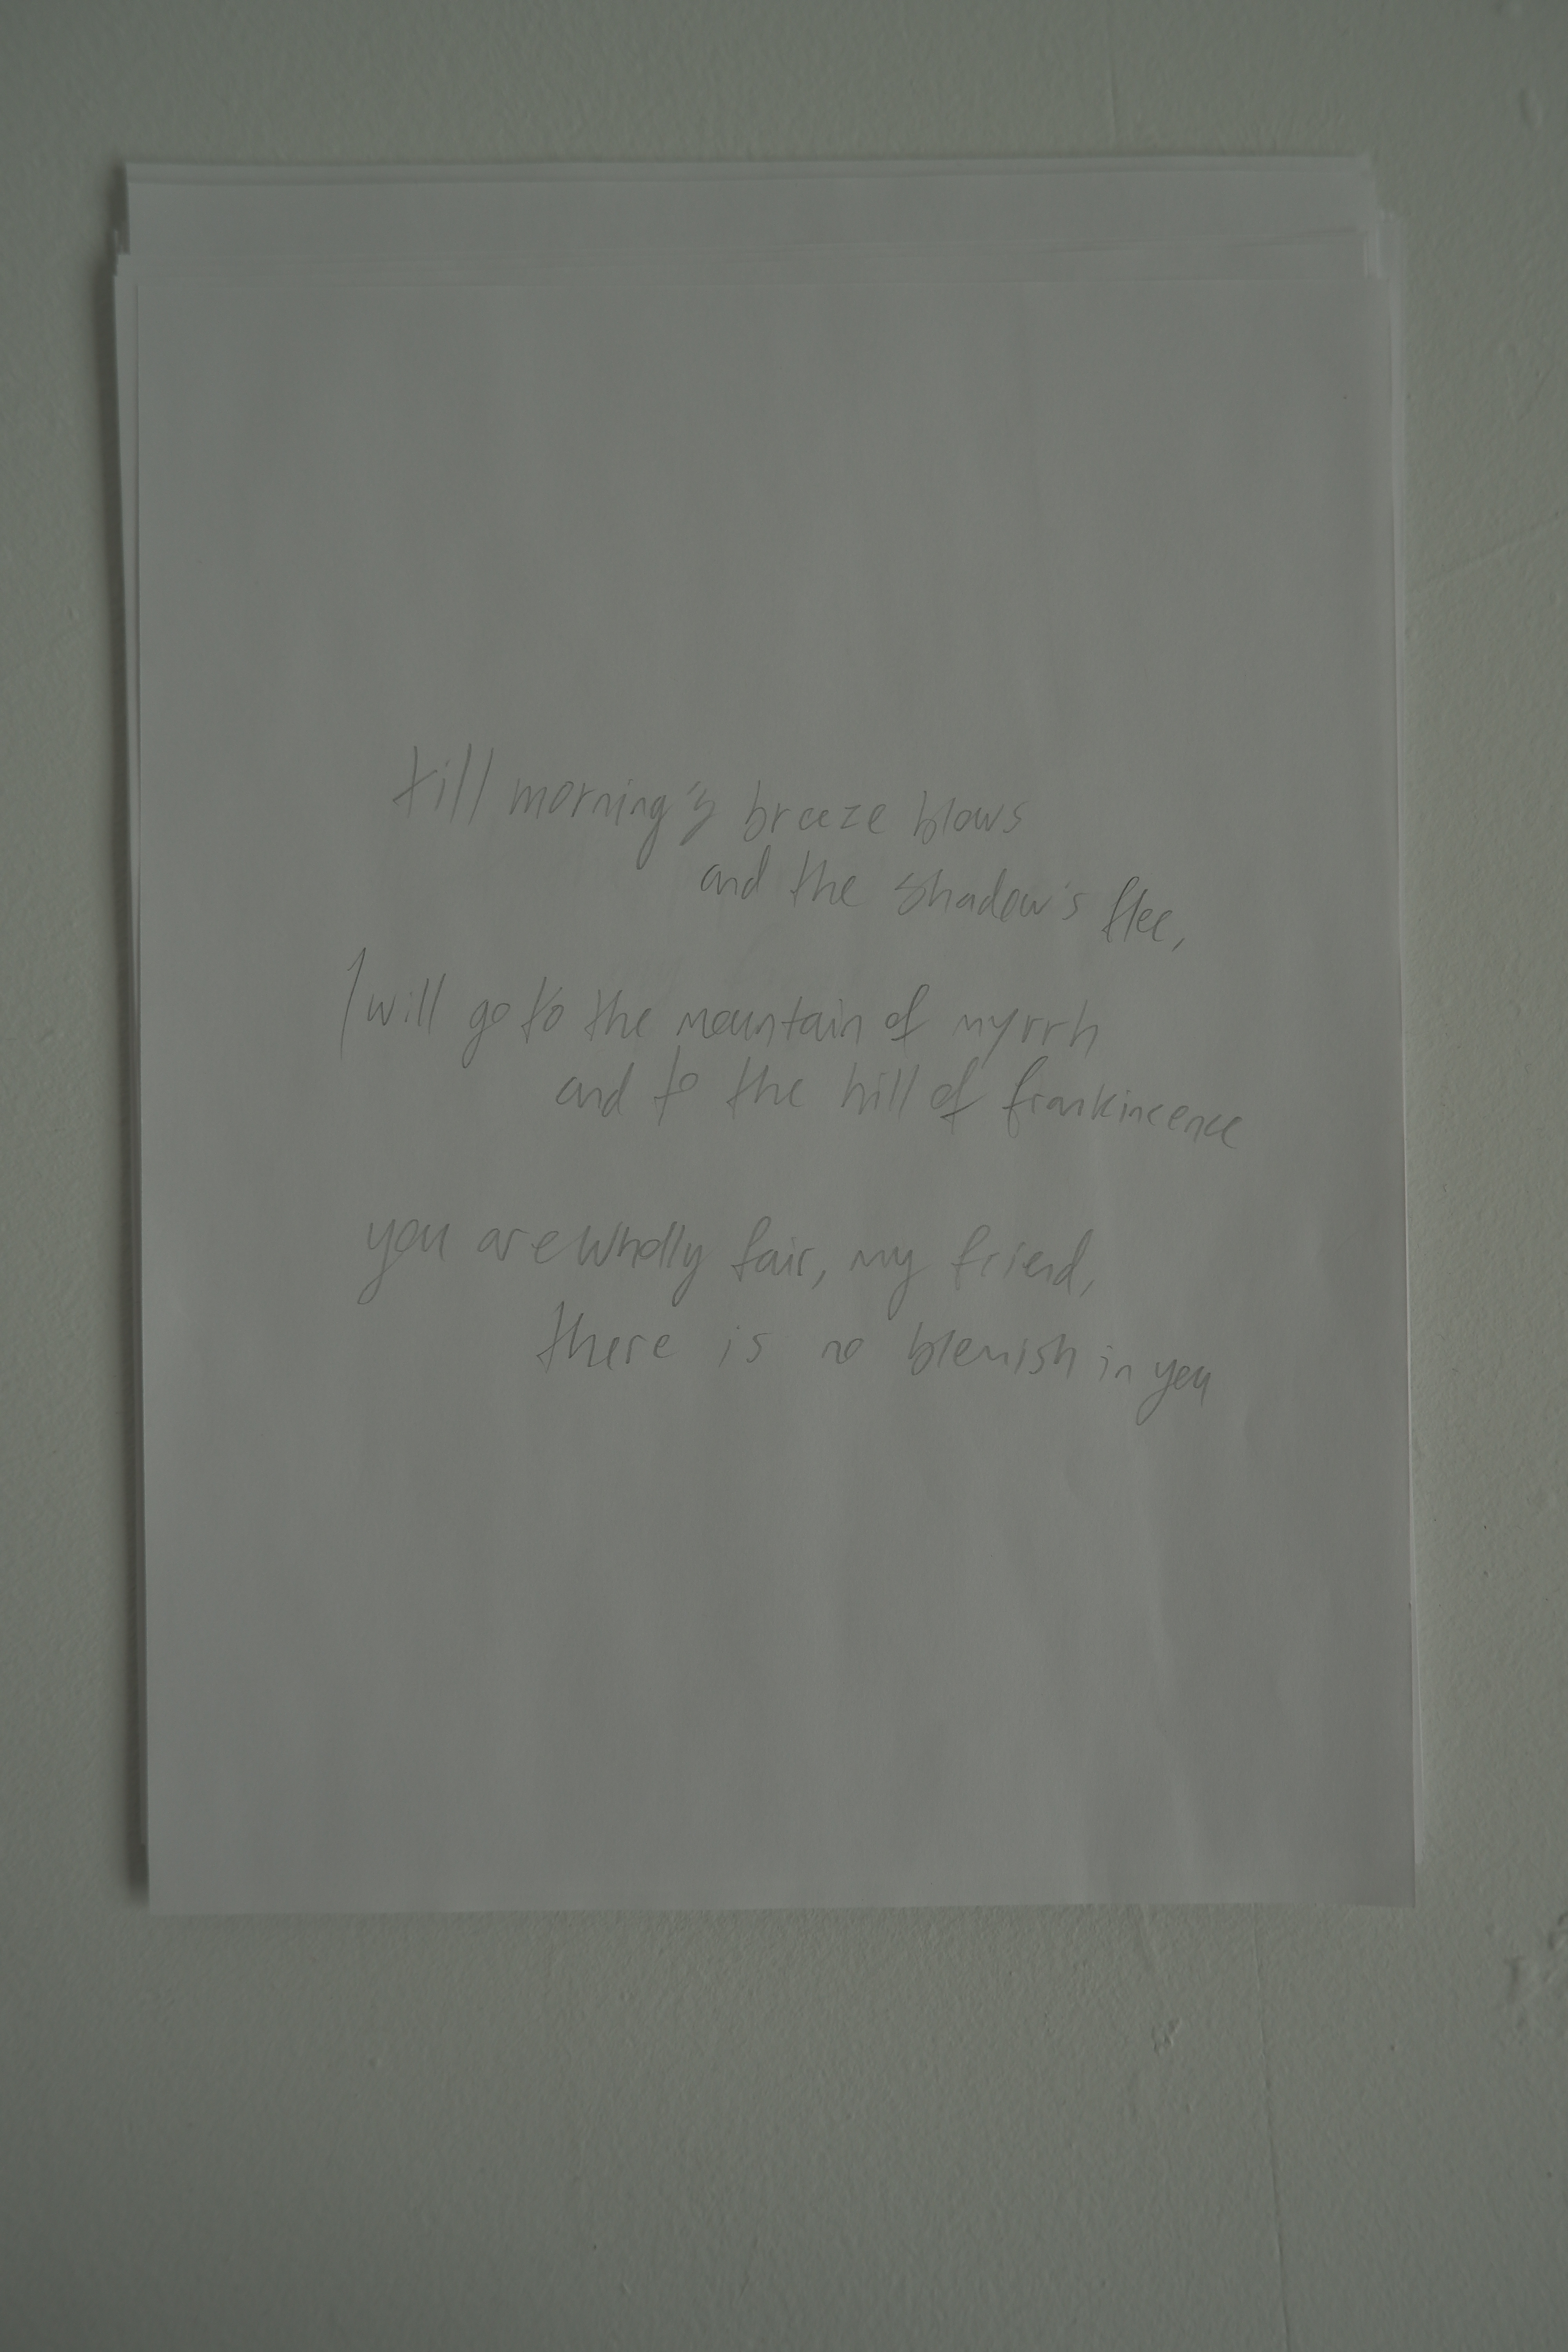 till morning's breeze blows
and the shadow's flee,
I will go to the mountain of myrrh
and to the hill of frankincence
you are wholly fair, my friend,
there is no blemish in you